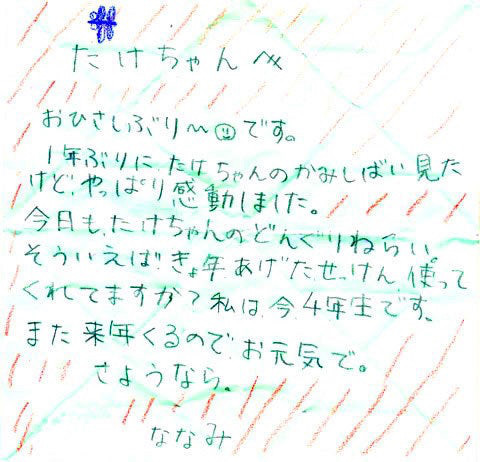 たけちゃんへ
おひさしぶり〜☺です。
1年ぶりに、たけちゃんのかみしばい見た
けど、やっぱり感動しました。
今日も、たけちゃんのどんぐりねらい。
そういえば、きょ年あげたせっけん、使って
くれてますか?私は、今、4年生です。
また来年くるので、お元気で。
さようなら。
ななみ